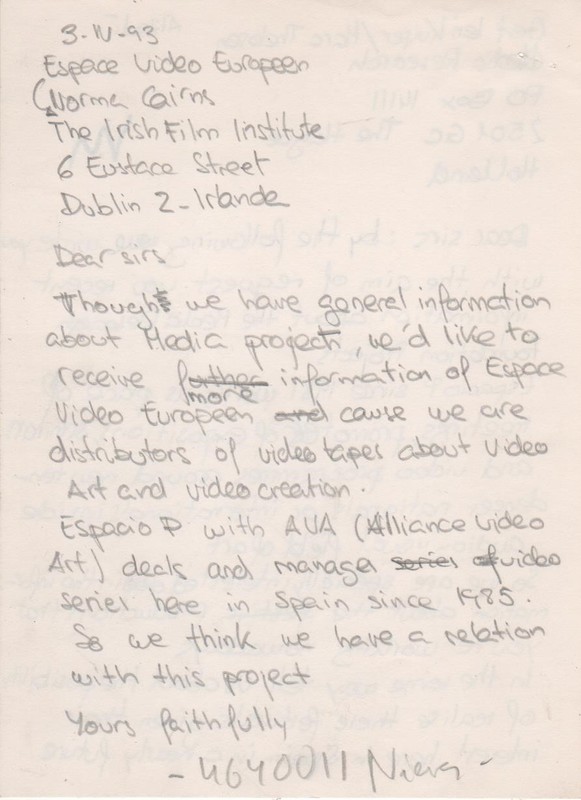 3-IV-93
Espace Video Europeen
(Norma Cairns
The Irish Film Institute
6 Eustace Street
Dublin 2-Irlande
Dear sirs
Though we have general information
about Media project, we'd like to
receive further more information of Espace
Video Europeen and cause we are
distributors of video tapes about video
Art and video creation.
Espacio P with AVA (Alliance Video
Art) deals and manages series of video
series here in Spain since 1985.
So we think we have a relation
with this project
Yours faithfully
- 4640011 Nieves -